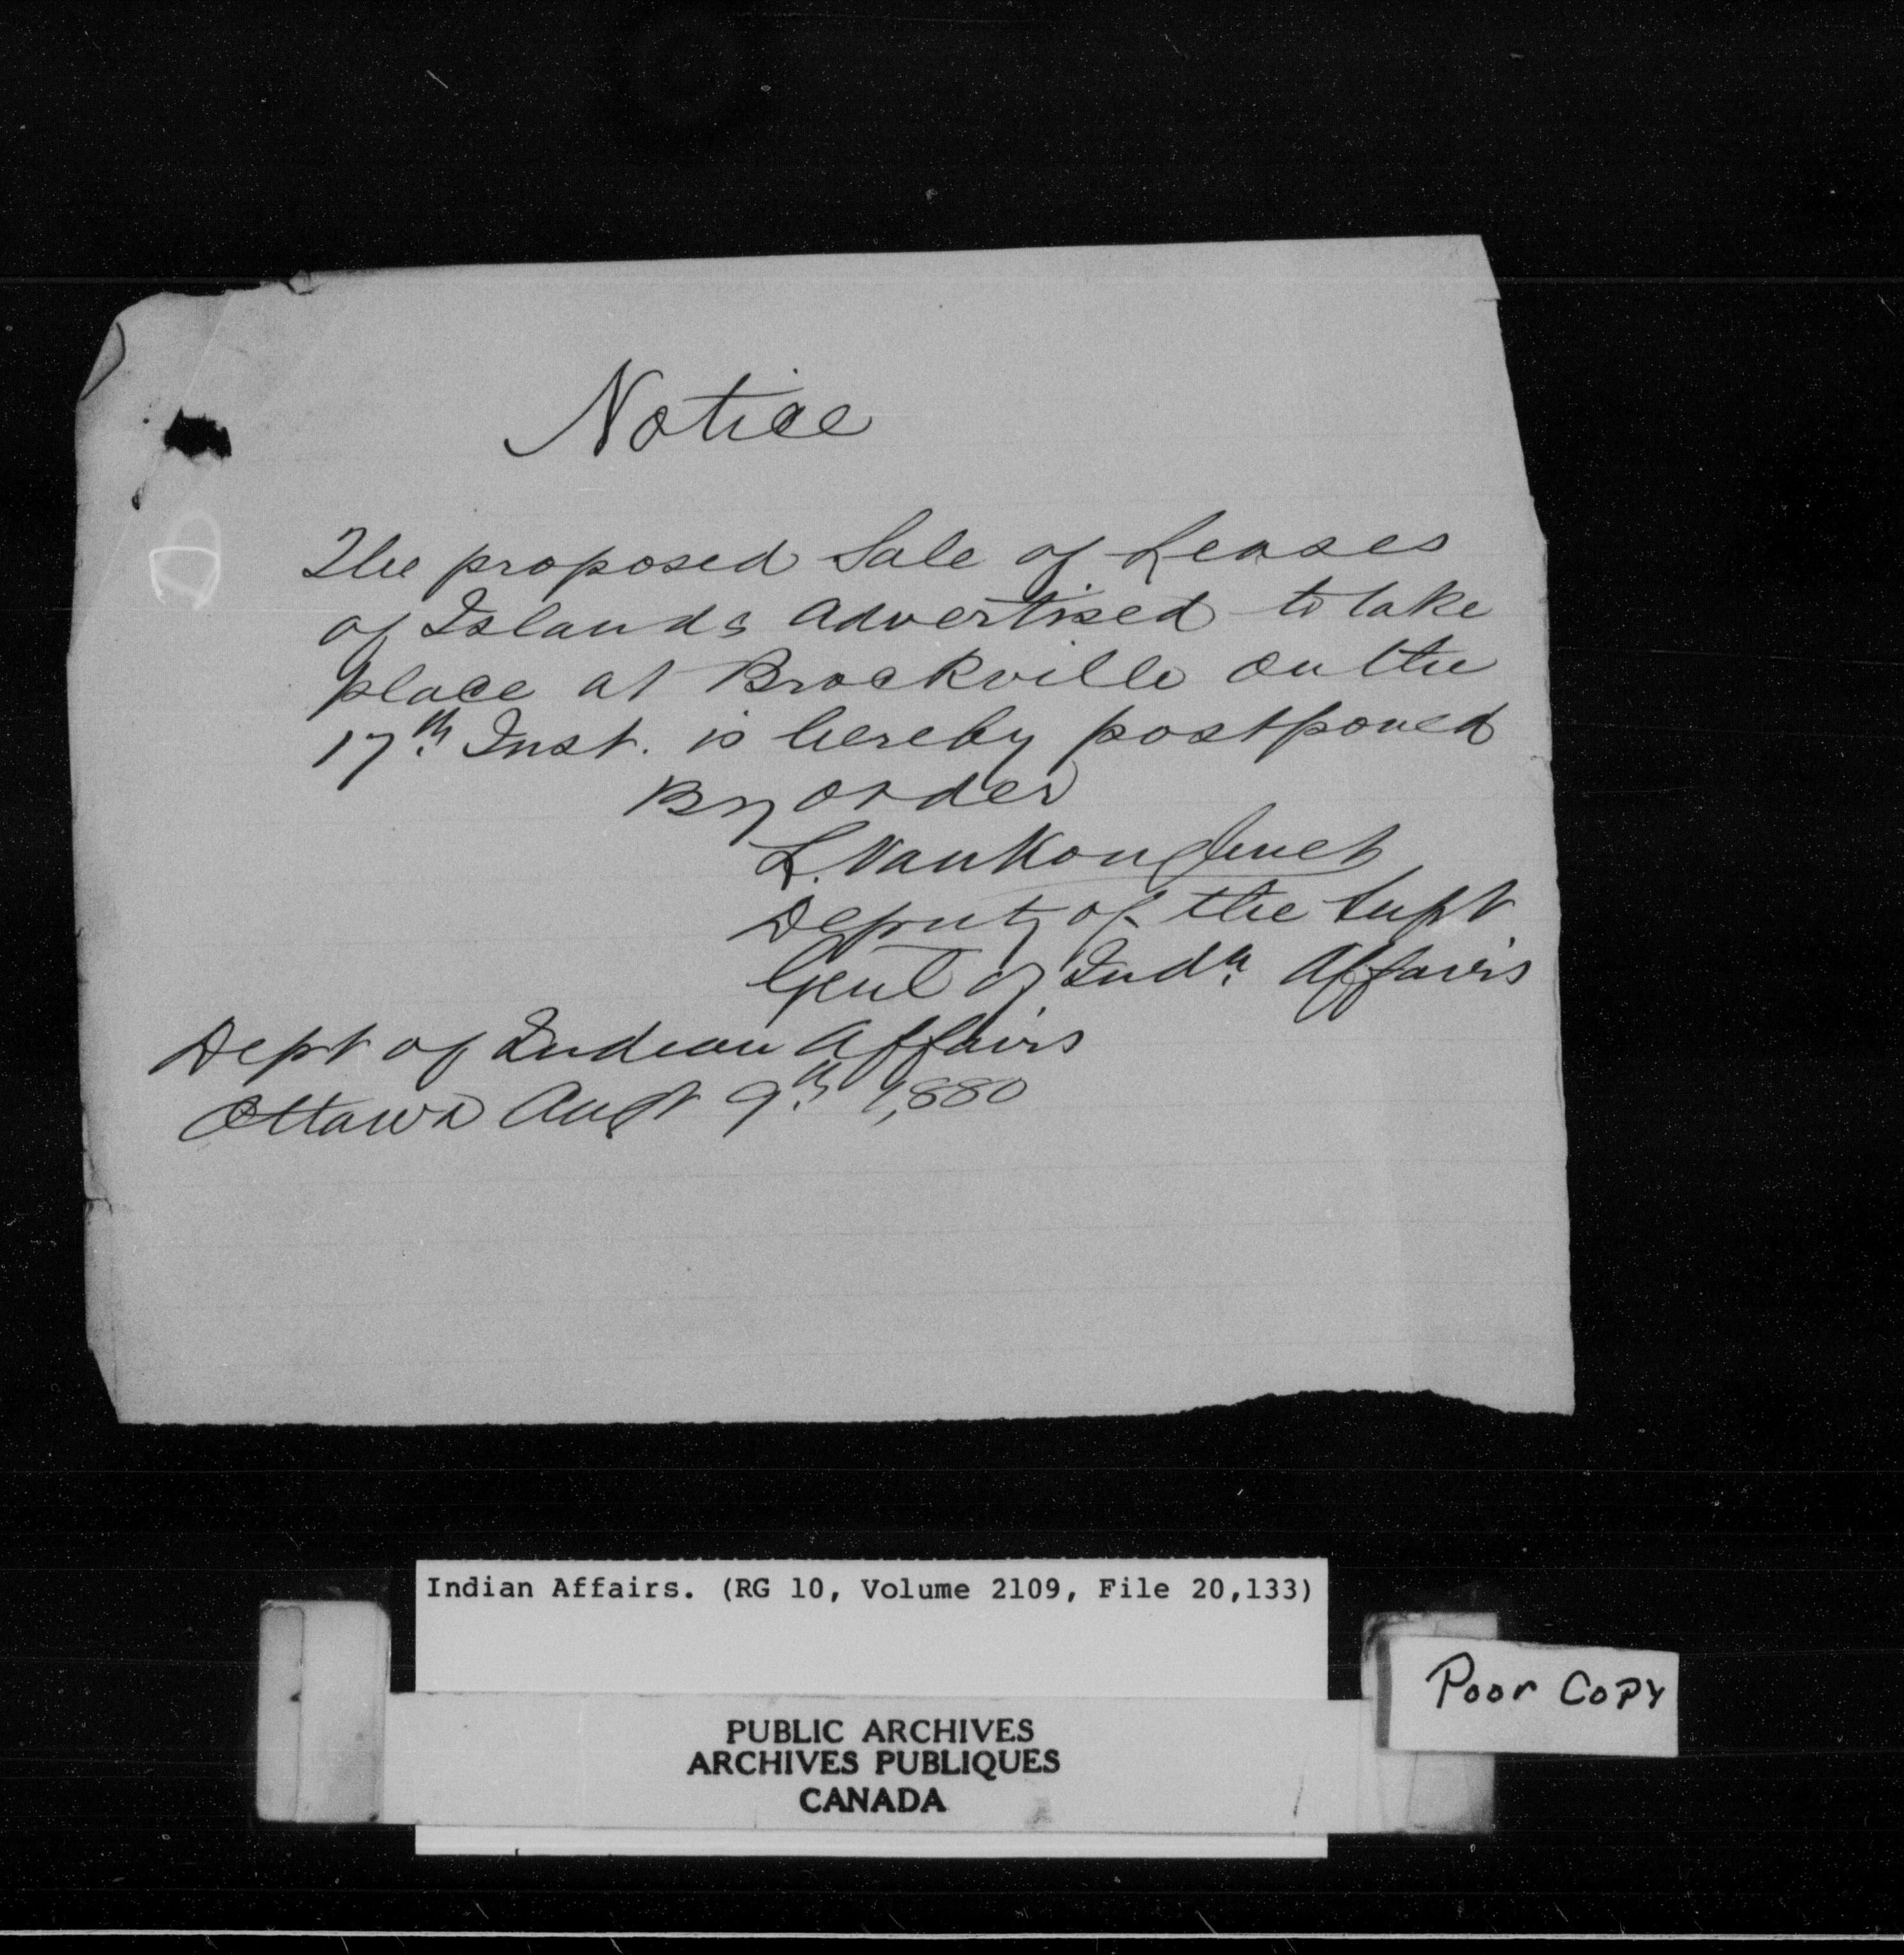 Notice
The proposed Sale of Leases
of Islands advertised to take
place at Brockville on the
17th Inst. is hereby postponed
By order
L. VanKoughnet
Deputy of the Supt
Genl of Indn. Affairs
Dept of Indian Affairs
Ottawa Augt 9th 1,880
D
Indian Affairs. (RG 10, Volume 2109, File 20,133)
PUBLIC ARCHIVES
ARCHIVES PUBLIQUES
CANADA
Poor Copy